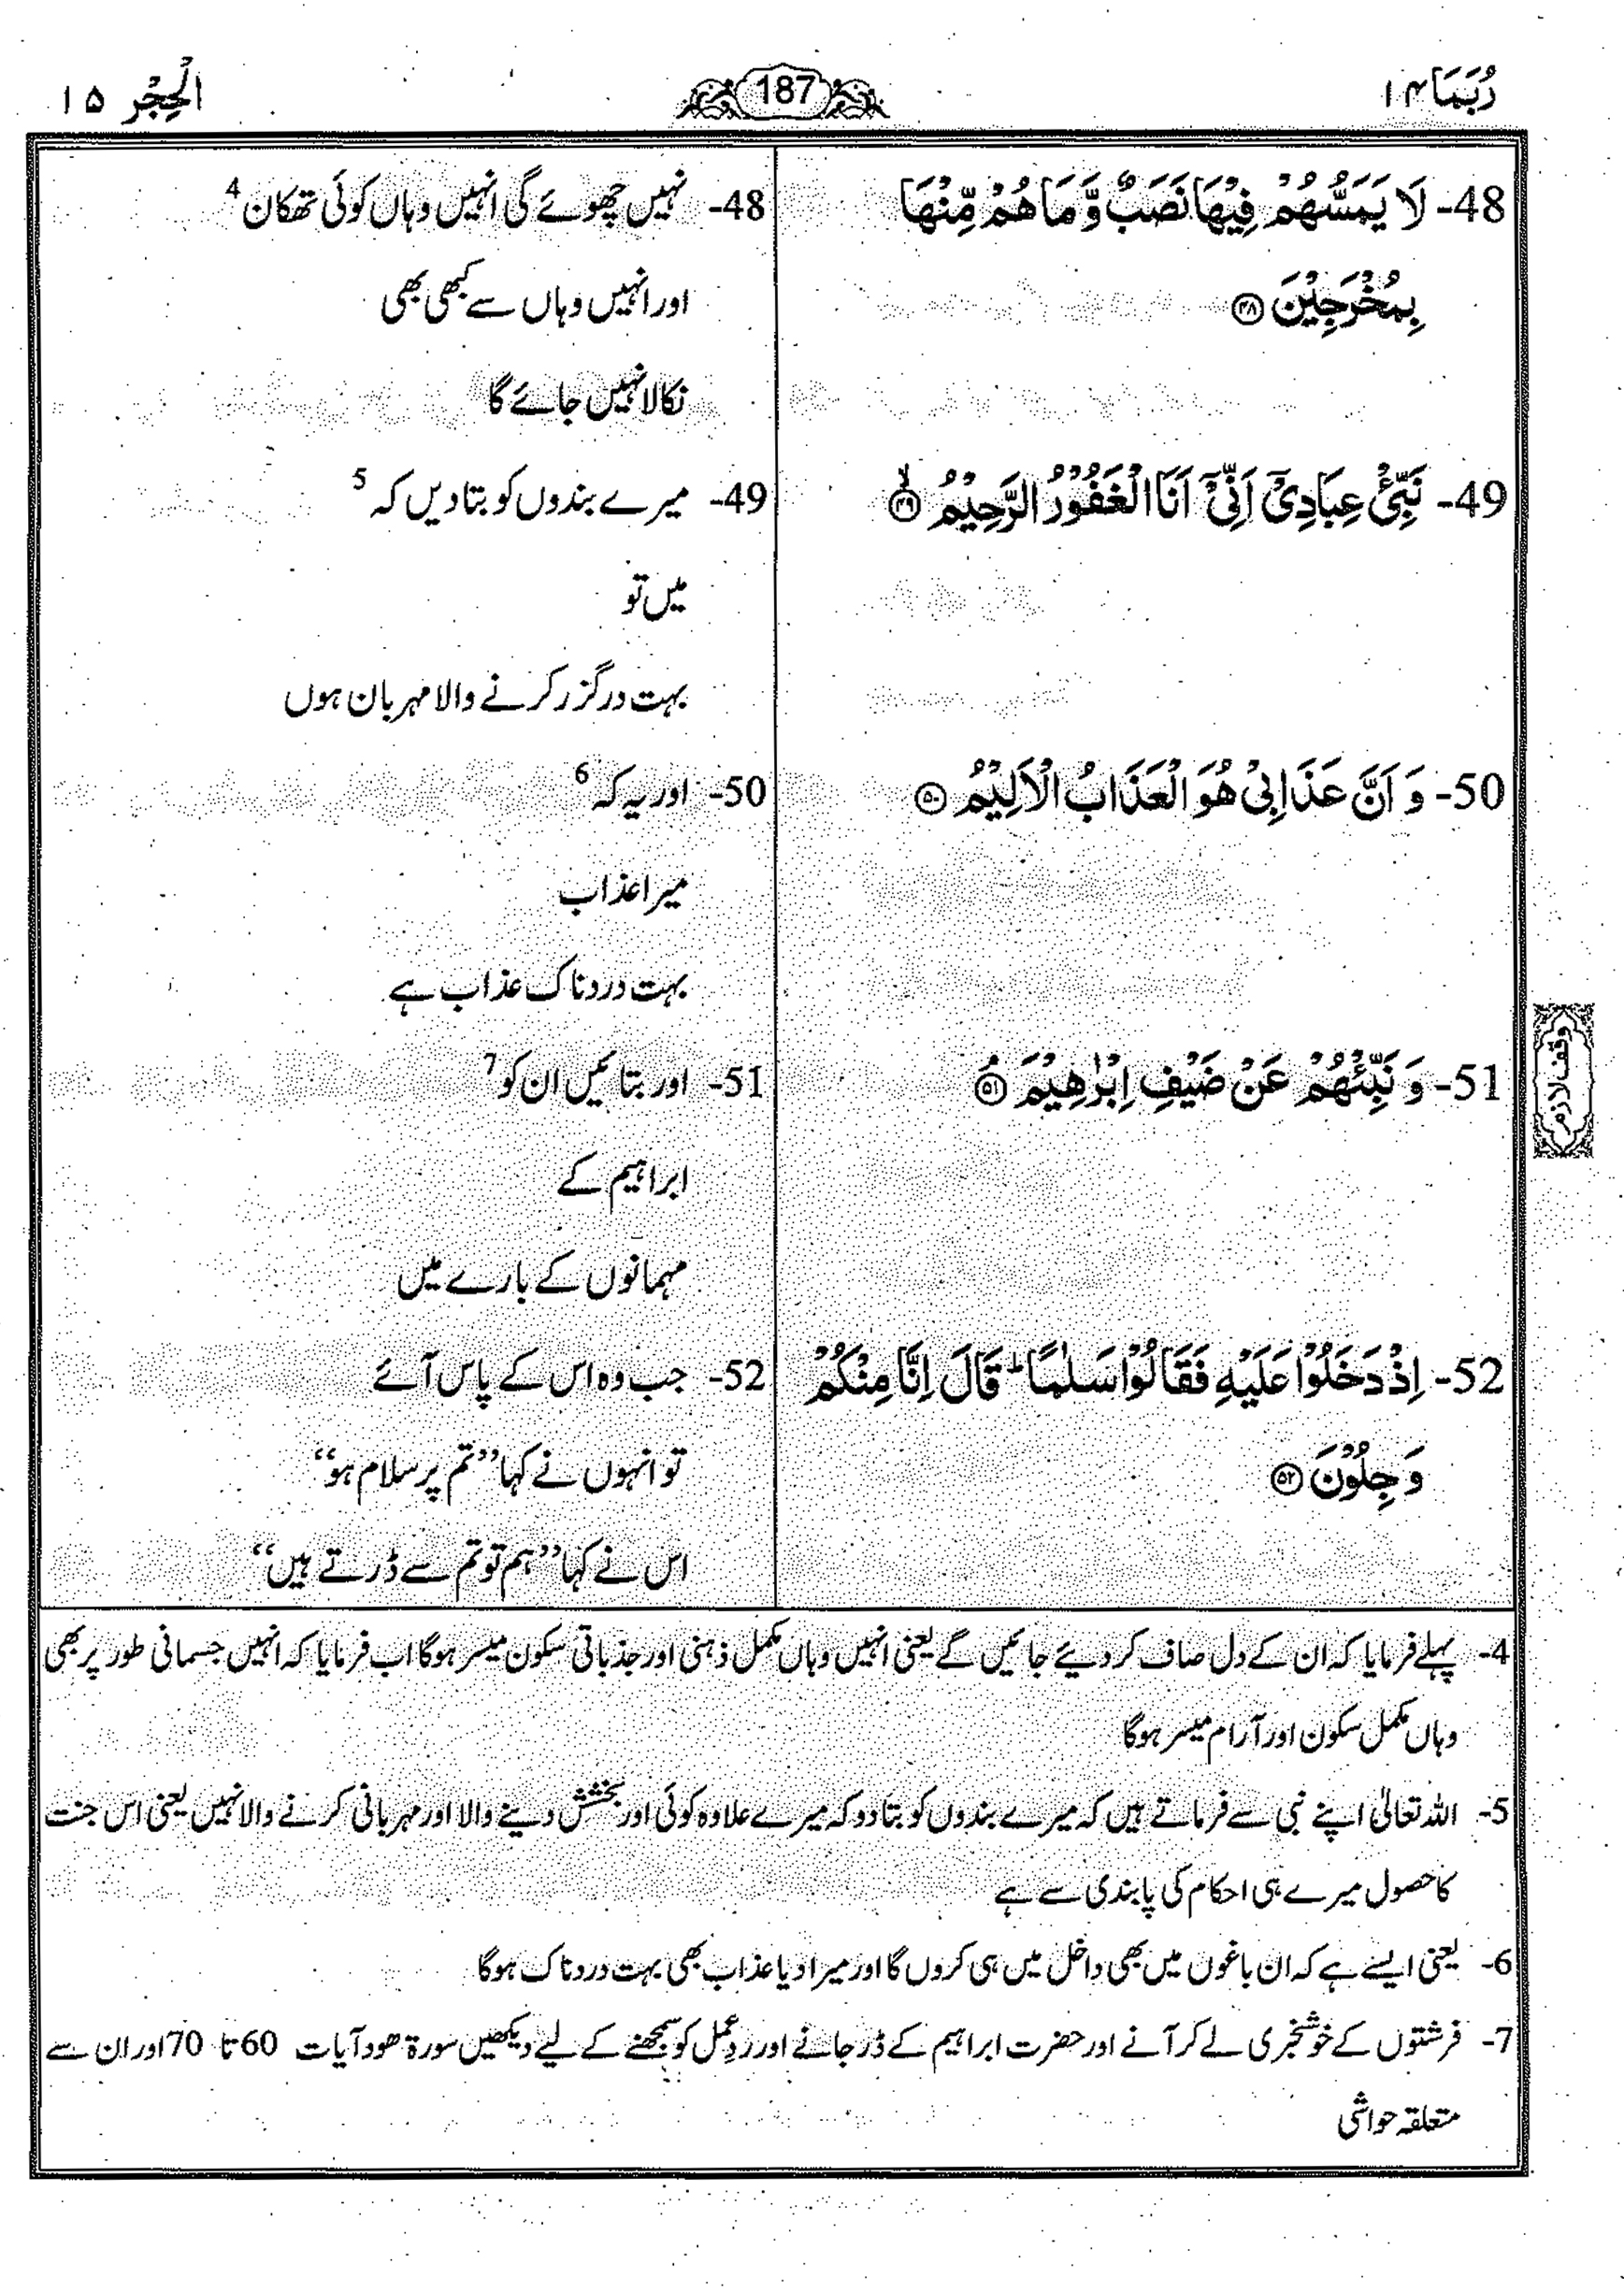 رُبَمَا ۱۴
187
اَلْحِجْر ۱۵
48- لَا يَمَسُّهُمْ فِيْهَا نَصَبٌ وَّ مَا هُمْ مِّنْهَا
بِمُخْرَجِيْنَ ﴿۴۸﴾
49- نَبِّئْ عِبَادِيْٓ اَنِّيْٓ اَنَا الْغَفُوْرُ الرَّحِيْمُ ﴿۴۹﴾ۙ
50- وَ اَنَّ عَذَابِيْ هُوَ الْعَذَابُ الْاَلِيْمُ ﴿۵۰﴾
51- وَ نَبِّئْهُمْ عَنْ ضَيْفِ اِبْرٰهِيْمَ ﴿۵۱﴾ۘ
52- اِذْ دَخَلُوْا عَلَيْهِ فَقَالُوْا سَلٰمًا ؕ قَالَ اِنَّا مِنْكُمْ
وَجِلُوْنَ ﴿۵۲﴾
وقف لازم
48- نہیں چھوئے گی انہیں وہاں کوئی تھکان 4
اور انہیں وہاں سے کبھی بھی
نکالا نہیں جائے گا
49- میرے بندوں کو بتا دیں کہ 5
میں تو
بہت درگزر کرنے والا مہربان ہوں
50- اور یہ کہ 6
میرا عذاب
بہت دردناک عذاب ہے
51- اور بتائیں ان کو 7
ابراہیم کے
مہمانوں کے بارے میں
52- جب وہ اس کے پاس آئے
تو انہوں نے کہا ”تم پر سلام ہو“
اس نے کہا ”ہم تو تم سے ڈرتے ہیں“
4- پہلے فرمایا کہ ان کے دل صاف کر دیئے جائیں گے یعنی انہیں وہاں مکمل ذہنی اور جذباتی سکون میسر ہوگا اب فرمایا کہ انہیں جسمانی طور پر بھی
وہاں مکمل سکون اور آرام میسر ہوگا
5- اللہ تعالیٰ اپنے نبی سے فرماتے ہیں کہ میرے بندوں کو بتا دو کہ میرے علاوہ کوئی اور بخشش دینے والا اور مہربانی کرنے والا نہیں یعنی اس جنت
کا حصول میرے ہی احکام کی پابندی سے ہے
6- یعنی ایسے ہے کہ ان باغوں میں بھی داخل میں ہی کروں گا اور میرا دیا عذاب بھی بہت دردناک ہوگا
7- فرشتوں کے خوشخبری لے کر آنے اور حضرت ابراہیم کے ڈر جانے اور ردِعمل کو سمجھنے کے لیے دیکھیں سورۃ ھود آیات 60 تا 70 اور ان سے
متعلقہ حواشی